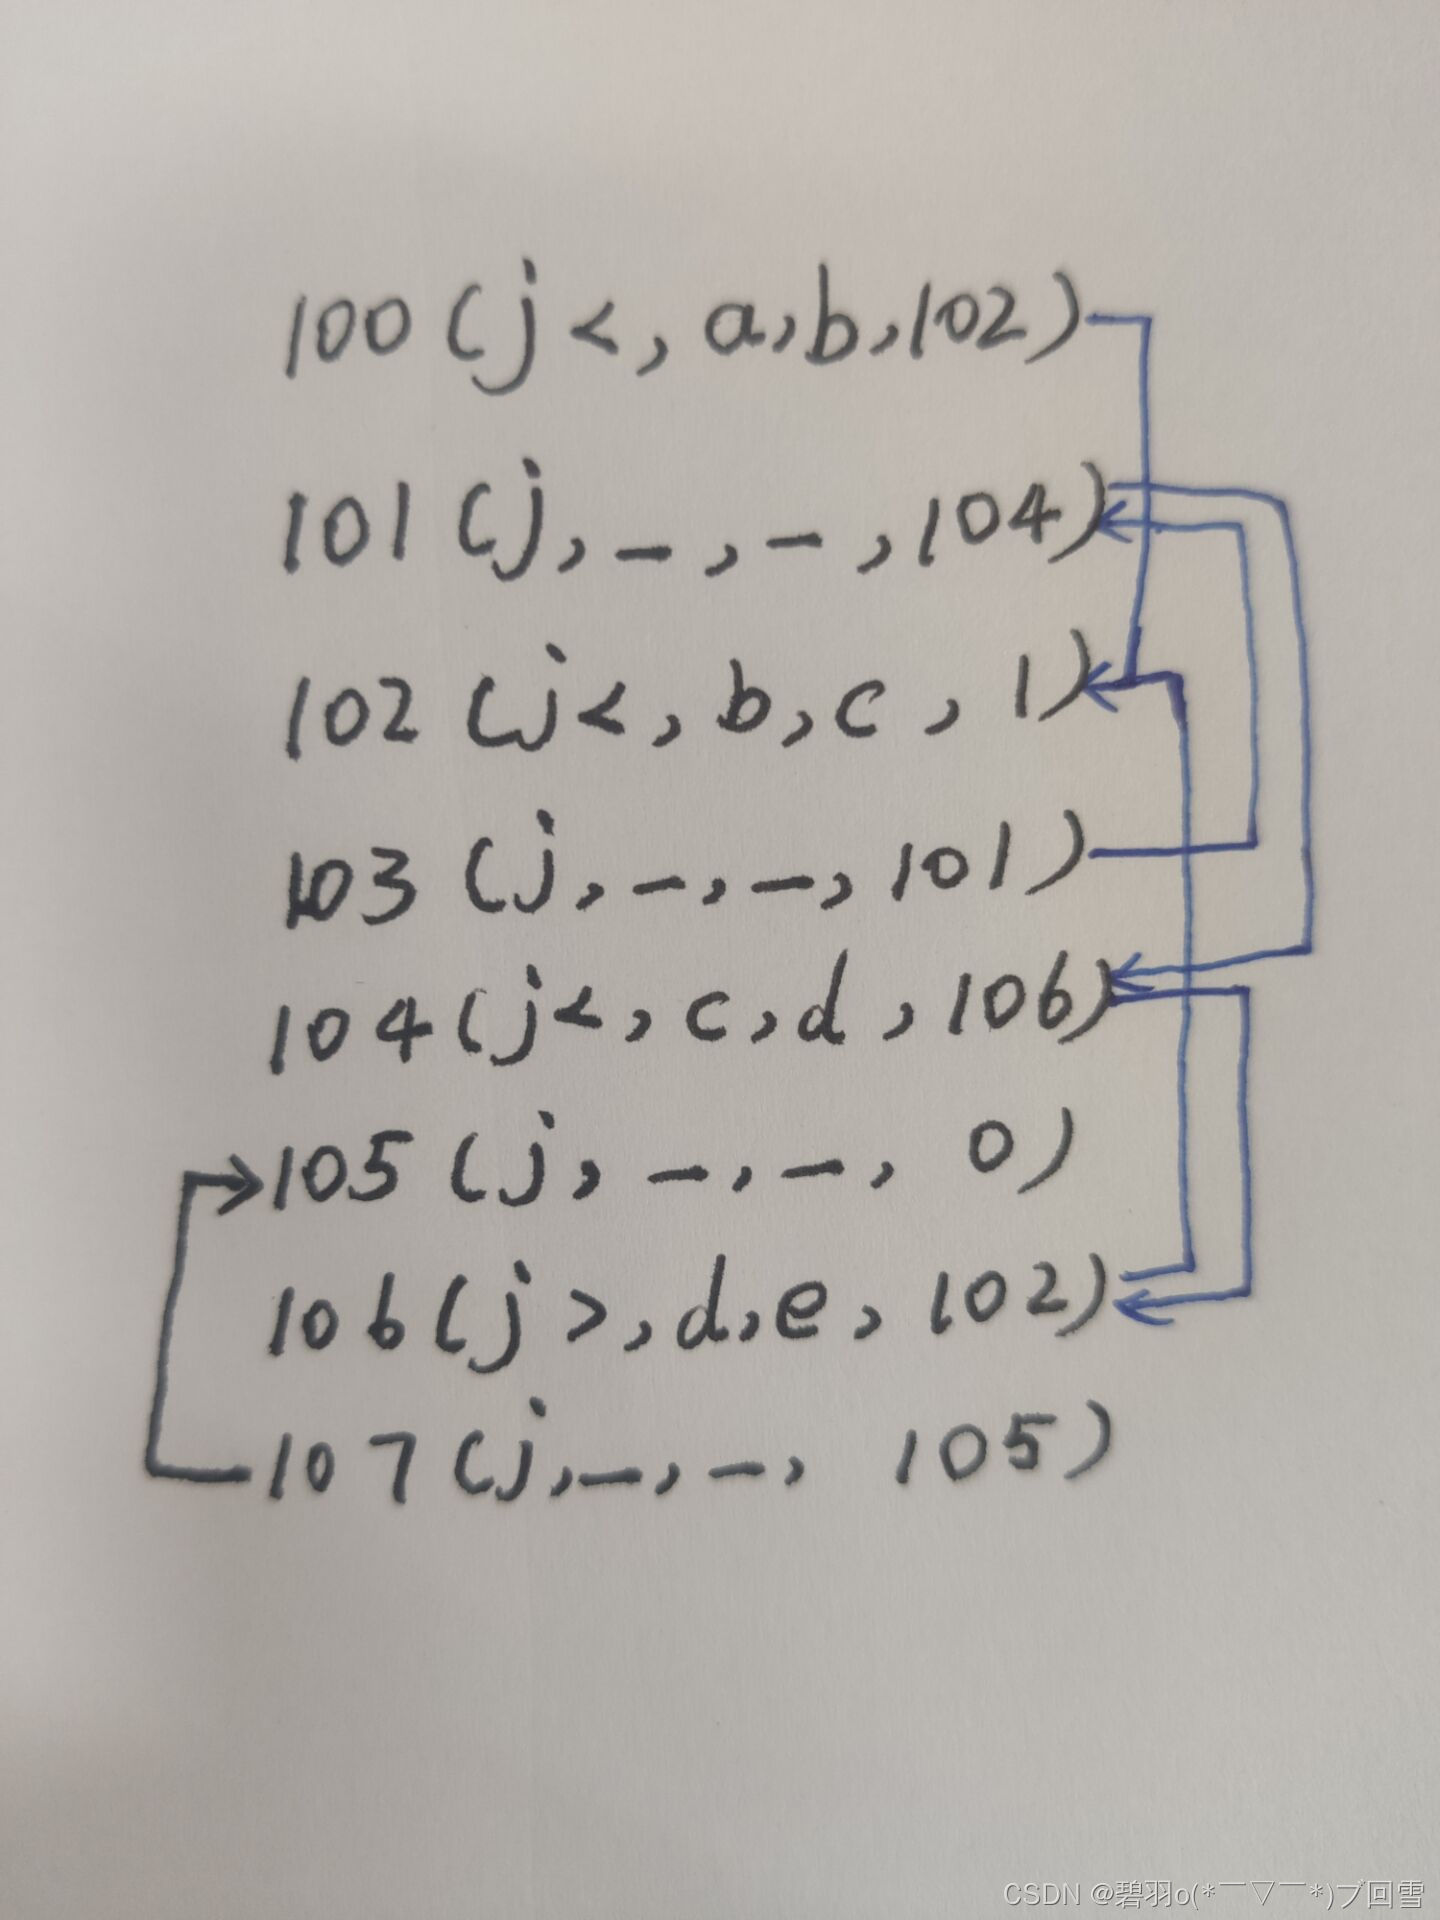 100 (j<, a, b, 102)
101 (j, _, _, 104)
102 (j<, b, c, 1)
103 (j, _, _, 101)
104 (j<, c, d, 106)
105 (j, _, _, 0)
106 (j>, d, e, 102)
107 (j, _, _, 105)
CSDN @碧羽o(*￣▽￣*)ブ回雪